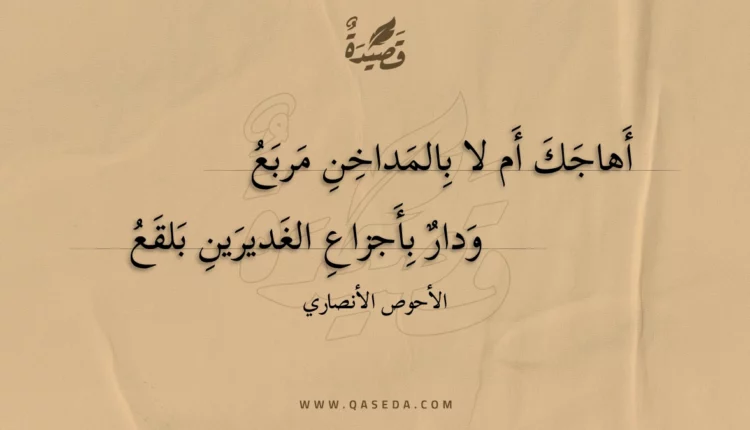 قَصِيْدَةٌ
أَهاجَكَ أَم لا بِالمَداخِنِ مَربَعُ
وَدارٌ بِأَجزاعِ الغَديرَينِ بَلقَعُ
الأحوص الأنصاري
WWW.QASEDA.COM